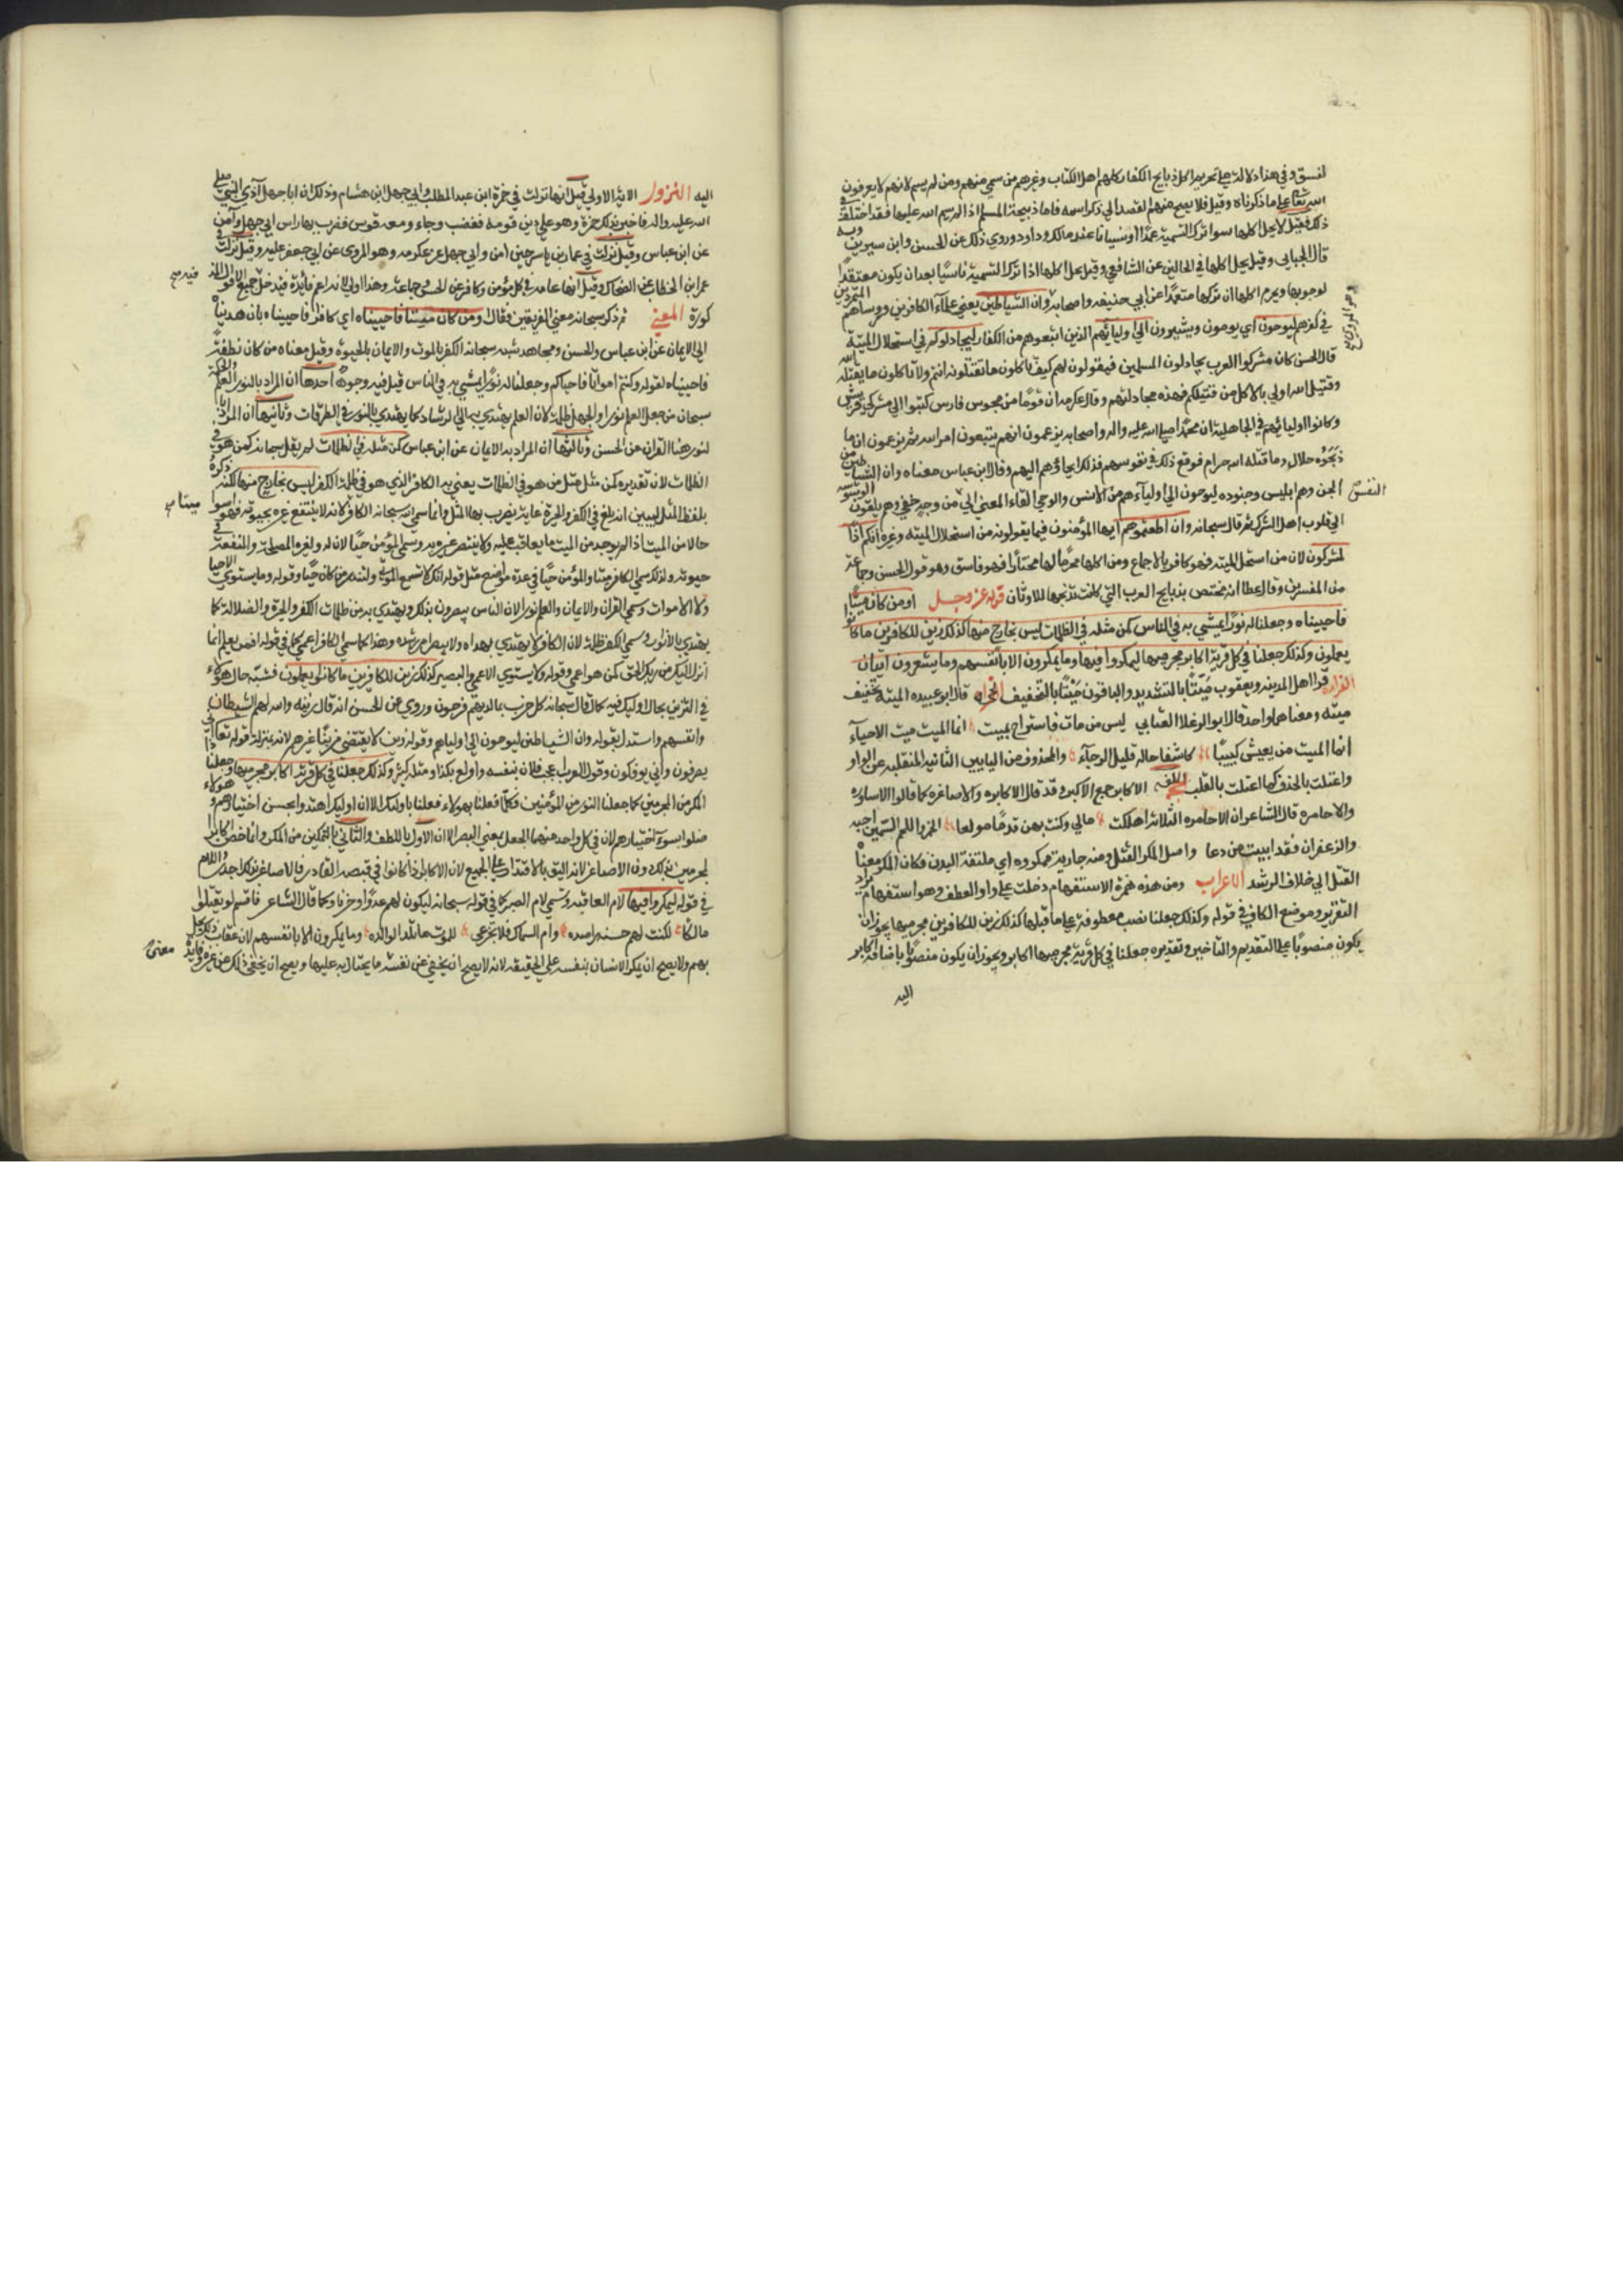 لفسق وفي هذا دلالة على تحريم اكل ذبايح الكفار كلهم اهل الكتاب وغيرهم من سمي منهم ومن لم يسم لانهم لا يعرفون
الله تعالى على ما ذكرناه وقيل فلا يصح منهم القصد الي ذكر اسمه فاما ذبيحة المسلم اذا لم يسم الله عليها فقد اختلف في
ذلك فقيل لا يحل اكلها سوا ترك التسمية عمدا او نسيانا عند مالك وداود وروي ذلك عن الحسن وابن سيرين وبه
قال الجبايي وقيل يحل اكلها في الحالين عن الشافعي وقيل يحل اكلها اذا ترك التسمية ناسيا بعد ان يكون معتقدا
لوجوبها ويحرم اكلها ان تركها متعمدا عن ابي حنيفه واصحابه وان الشياطين يعني علماء الكافرين وروساهم المتمردين
في كفرهم ليوحون اي يوحون ويشيرون الي اوليائهم الذين اتبعوهم من الكفار ليجادلوكم في استحلال الميتة
قال الحسن كان مشركوا العرب يجادلون المسلمين فيقولون لهم كيف تاكلون ما تقتلونه انتم ولا تاكلون ما يقتله الله
وقتيل الله اولي بالاكل من قتيلكم فهذه مجادلتهم وقال عكرمه ان قوما من مجوس فارس كتبوا الي مشركي قريش
وكانوا اوليائهم في الجاهلية ان محمدا صلي الله عليه واله واصحابه يزعمون انهم يتبعون امر الله ثم يزعمون ان ما
ذبحوه حلال وما قتله الله حرام فوقع ذلك في نفوسهم فذلك ايحاؤهم اليهم وقال ابن عباس معناه وان الشياطين من
الجن وهم ابليس وجنوده ليوحون الي اوليآءهم من الانس والوحي القاء المعني الي النفس من وجه خفي وهم يلقون الوسوسه
الي قلوب اهل الشرك ثم قال سبحانه وان اطعتموهم ايها المؤمنون فيما يقولونه من استحلال الميته وغيره انكم اذا
لمشركون لان من استحل الميته فهو كافر بالاجماع ومن اكلها محرما لها مختارا فهو فاسق وهو قول الحسن وجماعة
من المفسرين وقال عطا انه مختص بذبايح العرب التي كانت تذبحها للاوثان قوله عز وجل اومن كان ميتا
فاحييناه وجعلنا له نورا يمشي به في الناس كمن مثله في الظلمات ليس بخارج منها كذلك زين للكافرين ما كانوا
يعملون وكذلك جعلنا في كل قرية اكابر مجرميها ليمكروا فيها وما يمكرون الا بانفسهم وما يشعرون ايتان
القراءة قرا اهل المدينه ويعقوب ميتا بالتشديد والباقون ميتا بالتخفيف الحجه قال ابو عبيده الميتة تخفيف
ميته ومعناهما واحد قال ابو الرعلا الغساني ليس من مات فاستراح بميت انما الميت ميت الاحيآء
انما الميت من يعيش كئيبا كاسفا حاله قليل الرجآء والمحذوف من اليايين الثانية المنقلبه عن الواو
واعتلت بالحذف كما اعتلت بالقلب اللغه الاكابر جمع الاكبر وقد قالو الاكابره والاصاغره كما قالوا الاساوره
والاحامره قال الشاعر ان الاحامره الثلاثة اهلكت مالي وكنت بهن قدما مولعا الخمر واللحم السمين احبه
والزعفران فقد ابيت مودعا واصل المكر الفتل ومنه جارية ممكوره اي ملتفة البدن فكان المكر معناه
الفتل الي خلاف الرشد الاعراب ومن هذه همزة الاستفهام دخلت علي واو العطف وهو استفهام يراد به
التقرير وموضع الكاف في قوله وكذلك جعلنا نصب معطوفة علي ما قبلها كذلك زين للكافرين مجرميها يجوز ان
يكون منصوبا علي التقديم والتاخير وتقديره جعلنا في كل قرية مجرميها اكابر ويجوز ان يكون منصوبا باضافة اكابر
اليه
اليه النزول الاية الاولي قيل انها نزلت في حمزة ابن عبد المطلب وابي جهل ابن هشام وذلك ان ابا جهل آذي النبي صلي
الله عليه واله فاخبر بذلك حمزة وهو علي دين قومه فغضب وجاء ومعه قوس فضرب بها راس ابي جهل وآمن
عن ابن عباس وقيل نزلت في عمار بن ياسر حين امن وابي جهل عن عكرمه وهو المروي عن ابي جعفر عليه وقيل نزلت في
عمر ابن الخطاب عن الضحاك وقيل انها عامة في كل مؤمن وكافر عن الحسن وجماعة وهذا اولي لانه اعم فائدة فيدخل فيه جميع الاقوال المذ
كورة المعني ثم ذكر سبحانه معني الفريقين فقال اومن كان ميتا فاحييناه اي كافرا فاحييناه بان هديناه
الي الايمان عن ابن عباس والحسن ومجاهد شبه سبحانه الكفر بالموت والايمان بالحيوة وقيل معناه من كان نطفة
فاحييناه لقوله وكنتم امواتا فاحياكم وجعلنا له نورا يمشي به في الناس قيل فيه وجوه احدها ان المراد بالنور العلم والحكمة
سبحان من جعل العلم نورا والجهل ظلمة لان العلم يهتدي به الي الرشاد كما يهتدي بالنور في الطرقات وثانيها ان المراد با
لنور هنا القران عن الحسن وثالثها ان المراد به الايمان عن ابن عباس كمن مثله في الظلمات لم يقل سبحانه كمن هو في
الظلمات لان تقديره كمن مثل مثل من هو في الظلمات يعني به الكافر الذي هو في ظلمة الكفر ليس بخارج منها لكنه ذكره
بلفظ المثل ليبين انه بلغ في الكفر والحيرة غاية يضرب بها المثل وانما سمي الله سبحانه الكافر ميتا لانه لا ينتفع غيره بحيوته فهو اسوا
حالا من الميت اذا لم يوجد من الميت ما يعاقب عليه ولا يتضرر غيره به وسمي المؤمن حيا لان له ولغيره المصلحة والمنفعة في
حيوته ولذلك سمي الكافر ميتا والمؤمن حيا في عدة مواضع مثل قوله انك لا تسمع الموتي ولتنذر من كان حيا وقوله وما يستوي الاحيا
ولا الاموات وسمي القران والايمان والعلم نورا لان الناس يبصرون بذلك ويهتدي به من ظلمات الكفر والحيرة والضلالة كما
يهتدي بالانوار وسمي الكفر ظلمة لان الكافر لا يهتدي بهداه ولا يبصر امر رشده وهذا كما سمي الكافر اعمي كما في قوله افمن يعلم انما
انزل اليك من ربك الحق كمن هو اعمي وقوله ولا يستوي الاعمي والبصير كذلك زين للكافرين ما كانوا يعملون فشبه حال هؤلاء
في التزيين بحال اوليك فيه كما قال سبحانه كل حزب بما لديهم فرحون وروي عن الحسن انه قال زينه والله لهم الشيطان
وانفسهم واستدل بقوله وان الشياطين ليوحون الي اولياهم وقوله زين لا يقتضي مزينا غيرهم لانه بمنزلة قوله تعالي اني
يصرفون واني يوفكون وقول العرب اعجب فلان بنفسه واولع بكذا ومثله كثير وكذلك جعلنا في كل قرية اكابر مجرميها وجعلنا ذا
المكر من المجرمين كما جعلنا النور من المؤمنين فكلما فعلنا بهولاء فعلنا باوليك الا ان اوليك اهتدوا بحسن اختيارهم وهولاء
ضلوا بسوء اختيارهم لان في كل واحد منهما الجعل بمعني الصيرالا ان الاول باللطف والثاني بالتمكين من المكر وانما خص اكابر ا
لمجرمين بذلك دون الاصاغر لانه اليق بالاقتدار علي الجميع لان الاكابر اذا كانوا في قبضه القادر فالاصاغر بذلك اجدر واللام
في قوله ليمكروا فيها لام العاقبة وتسمي لام الصيركما في قوله سبحانه ليكون لهم عدوا وحزنا وكما قال الشاعر فاقسم لو قتلوا
مالكا لكنت لهم حية راصده وام السماك فلا تجزعي فللموت ما تلد الوالده وما يمكرون الا بانفسهم لان عقاب ذلك يحل
بهم ولا يصح ان يمكر الانسان بنفسه علي الحقيقه لانه لا يصح ان يخفي عن نفسه معني ما يحتال به عليها ويصح ان يخفي ذلك عن غيره وفايدة